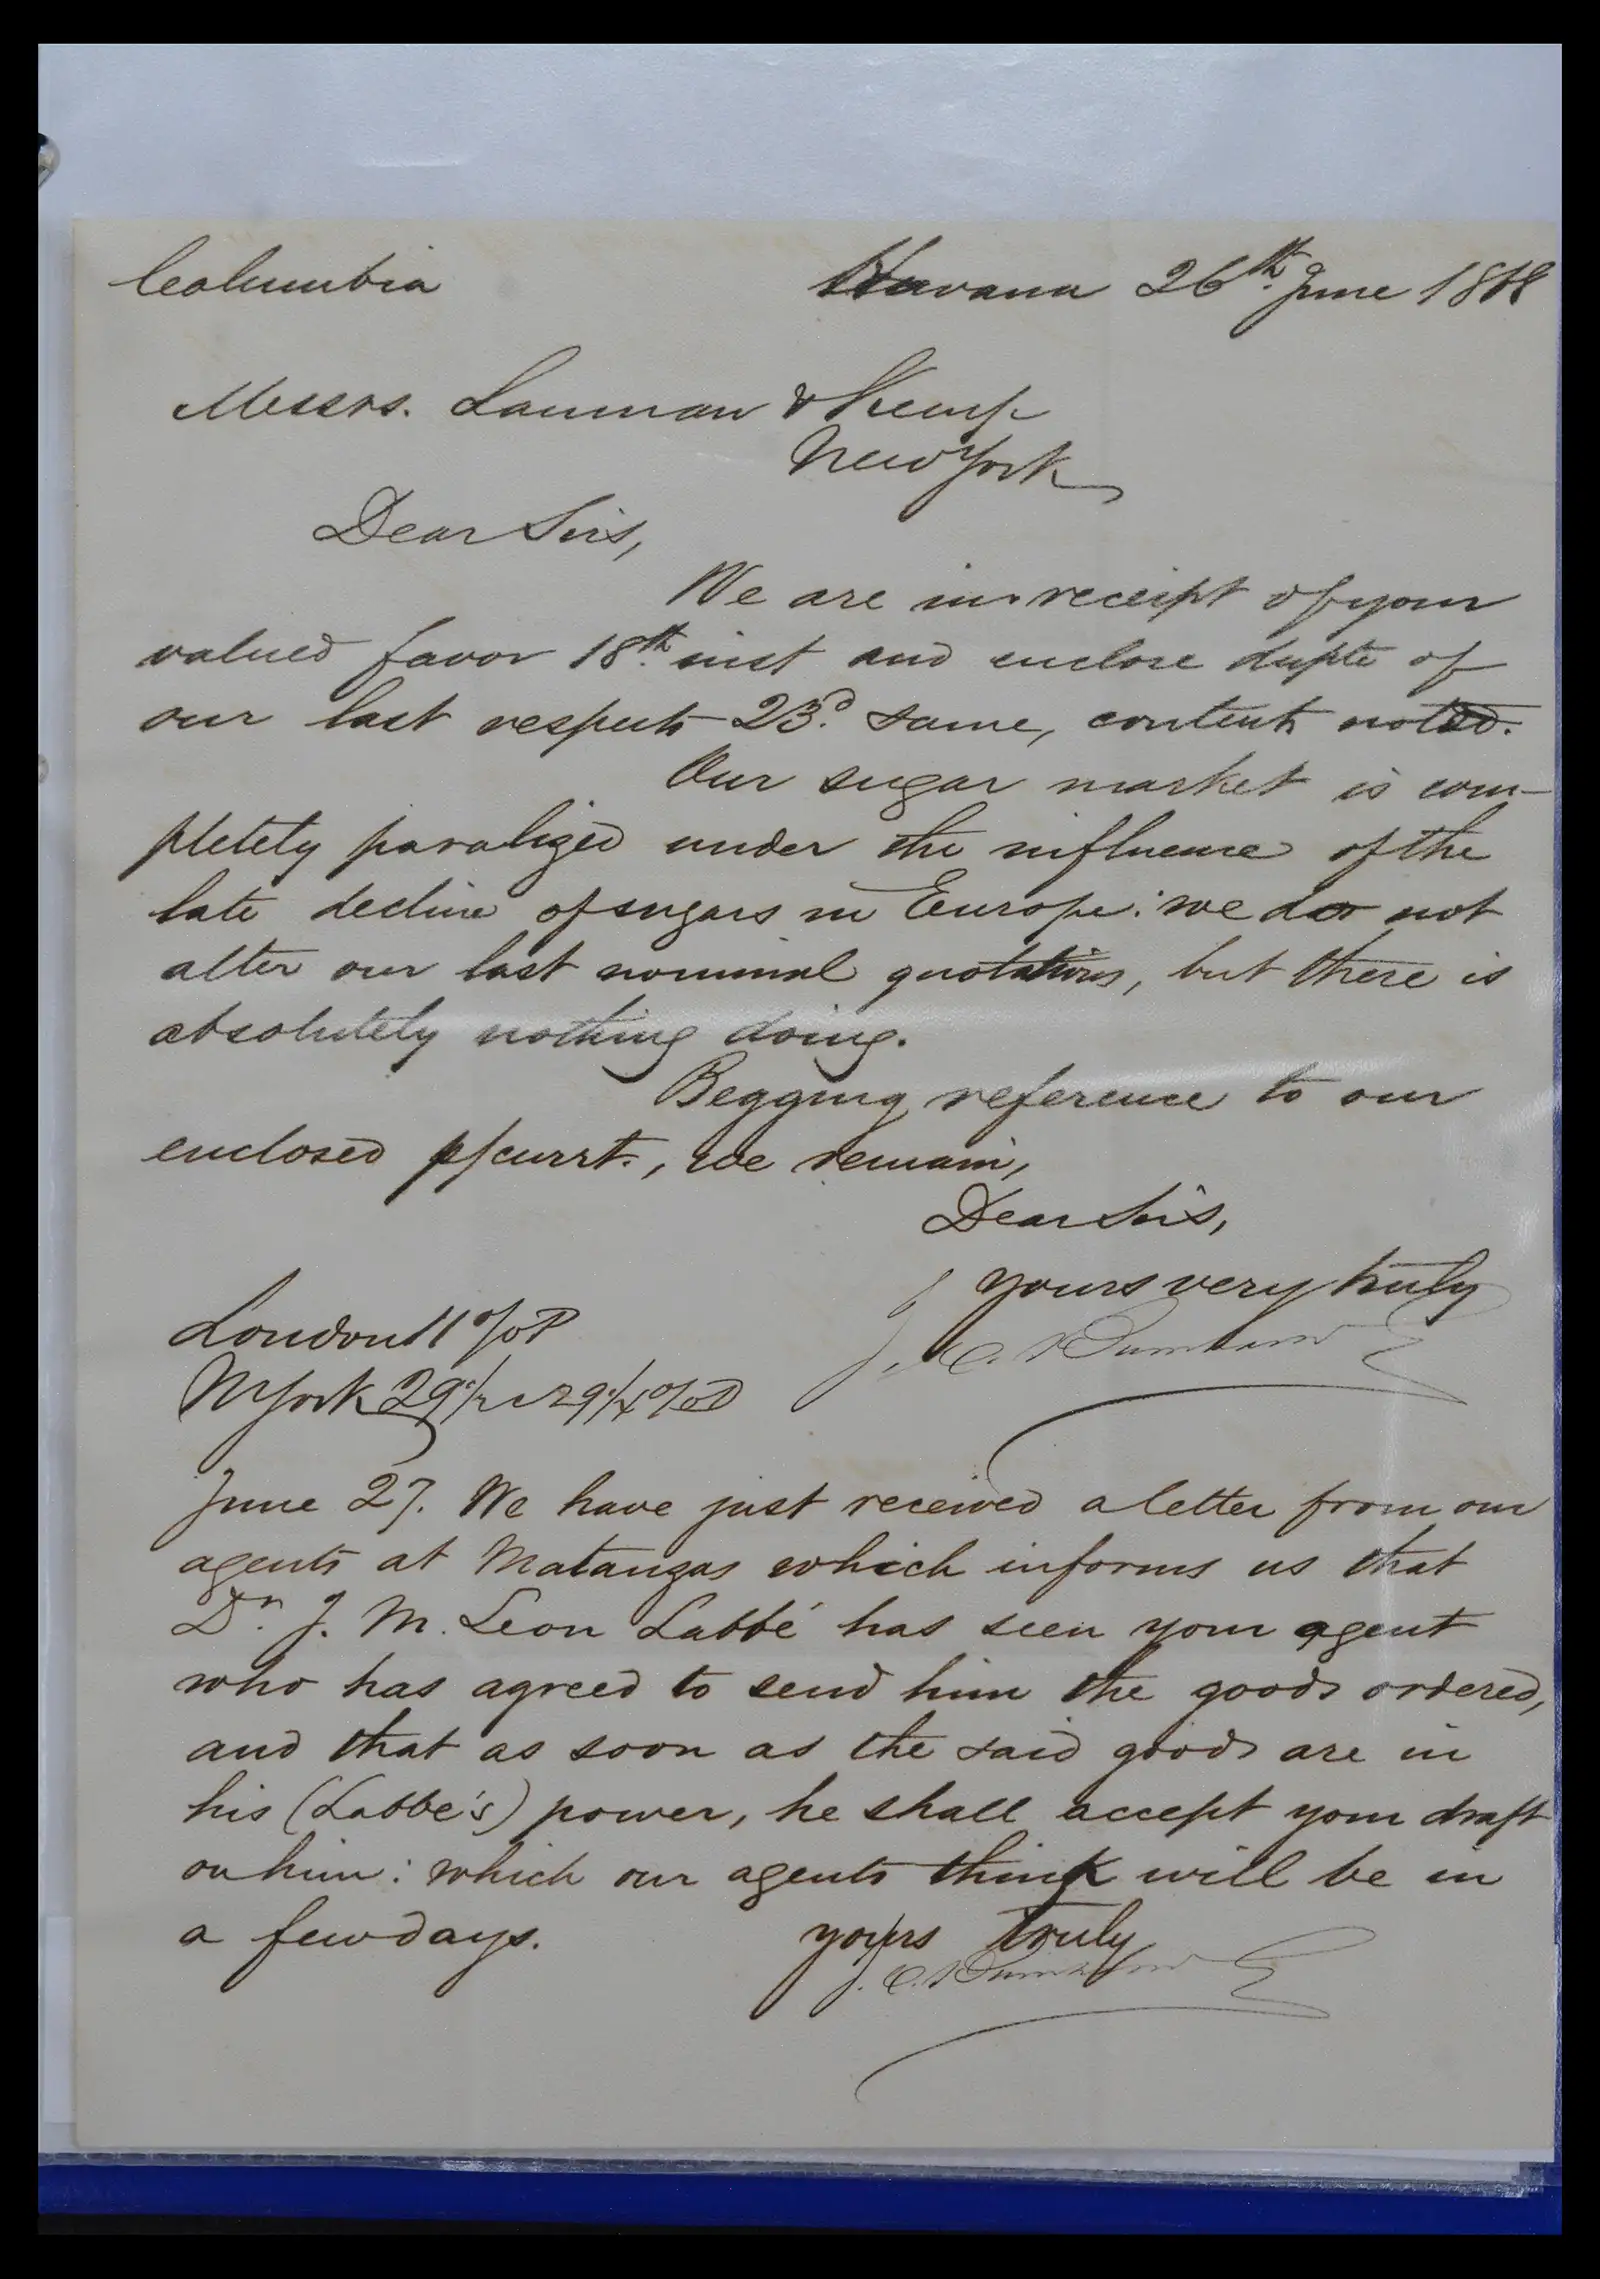 Columbia Havana 26th June 18
Messrs. Lanman & Kemp
New York
Dear Sirs,
We are in receipt of your
valued favor 18th inst and enclose duplte of
our last respects 23d same, contents noted.
Our sugar market is com-
pletely paralized under the influence of the
late decline of sugars in Europe: we do not
alter our last nominal quotations, but there is
absolutely nothing doing.
Begging reference to our
enclosed p/currt., we remain,
Dear Sirs,
yours very truly
London 11 %P
J. C. Burnham
NYork 29 1/2 a 29 1/4 %D
June 27. We have just received a letter from our
agents at Matanzas which informs us that
Dn. J. M. Leon Labbé has seen your agent
who has agreed to send him the goods ordered,
and that as soon as the said goods are in
his (Labbé's) power, he shall accept your draft
on him: which our agents think will be in
a few days. yours truly
J. C. Burnham